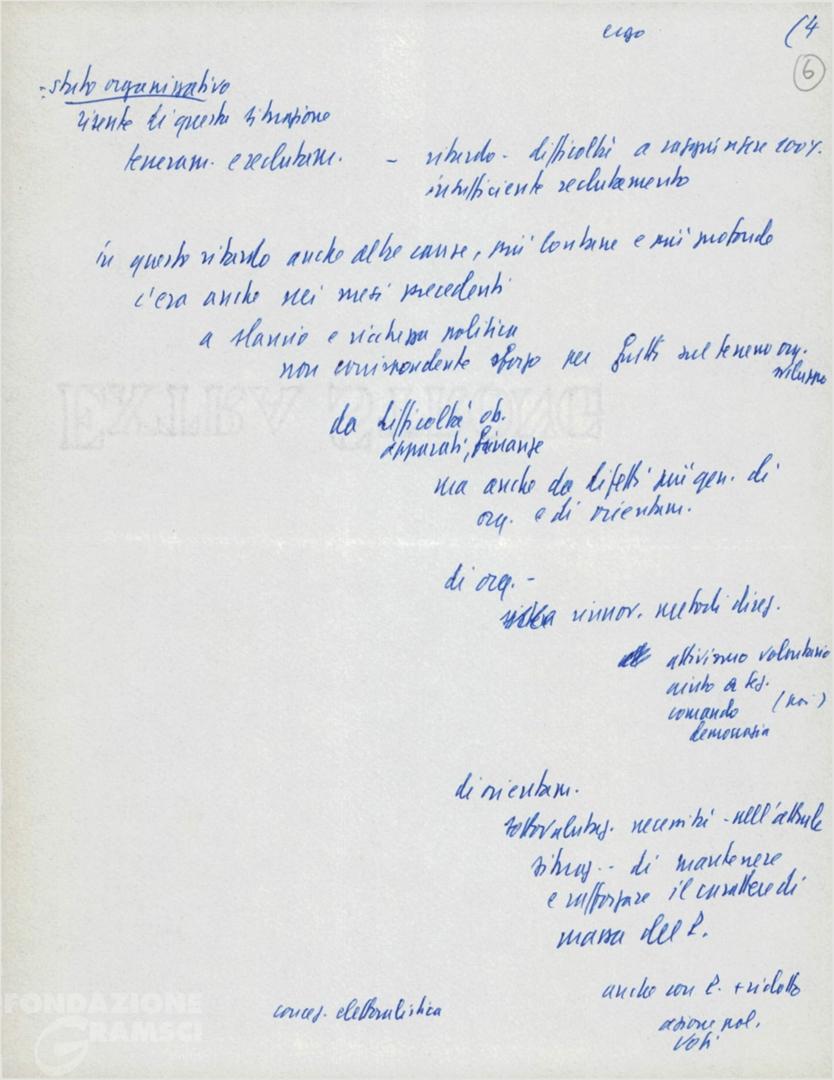 ergo (4
6
- stato organizzativo
risente di questa situazione
tesseram. e reclutam. - ritardo - difficoltà a raggiungere 100%.
insufficiente reclutamento
in questo ritardo anche altre cause, più lontane e più profonde
c'era anche nei mesi precedenti
a slancio e ricchezza politica
non corrispondente sforzo per frutti sul terreno org.
sviluppo
da difficoltà ob.
apparati, finanze
ma anche da difetti più gen. di
org. e di orientam.
di org. -
rinnov. metodi direz.
attivismo volontario
aiuto a sez.
comando (noi)
democrazia
di orientam.
sottovalutaz. necessità - nell'attuale
situaz. - di mantenere
e rafforzare il carattere di
massa del P.
anche con P. + ridotto
concez. elettoralistica
azione pol.
voti
EXTRA STRONG
FONDAZIONE
GRAMSCI